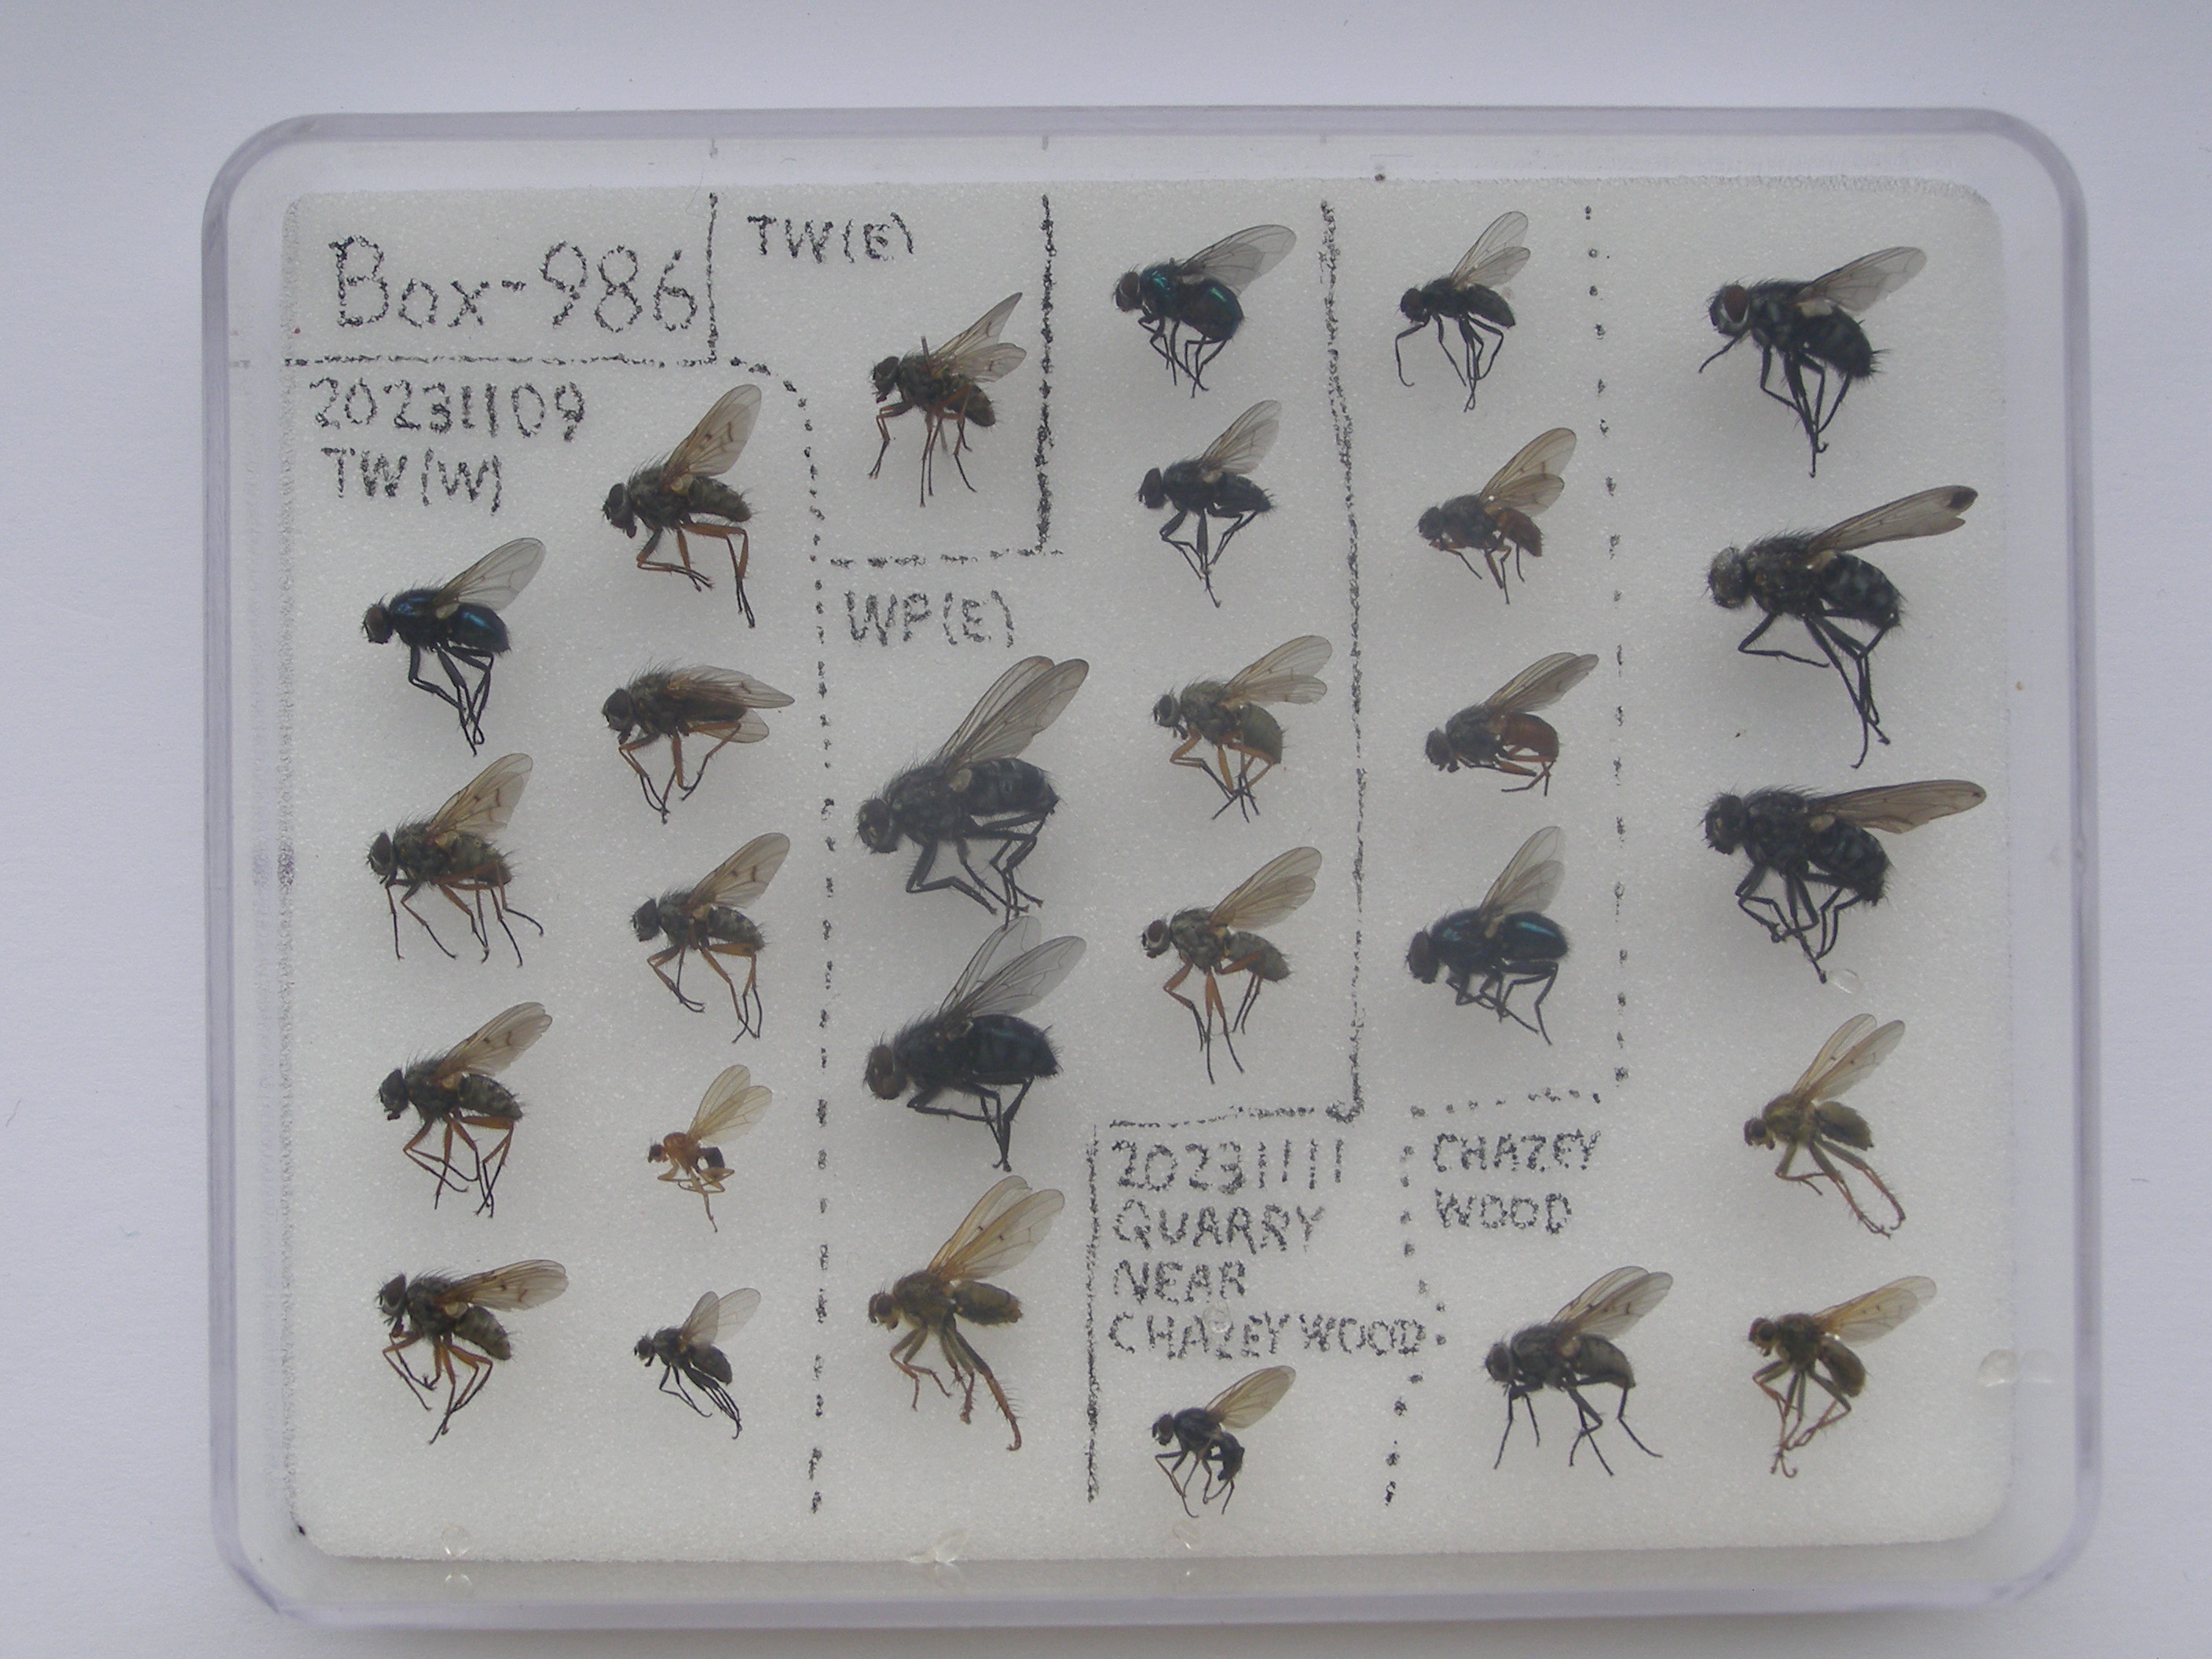 Box-986
TW(E)
20231109
TW(W)
WP(E)
20231111
QUARRY
NEAR
CHAZEY WOOD
CHAZEY
WOOD